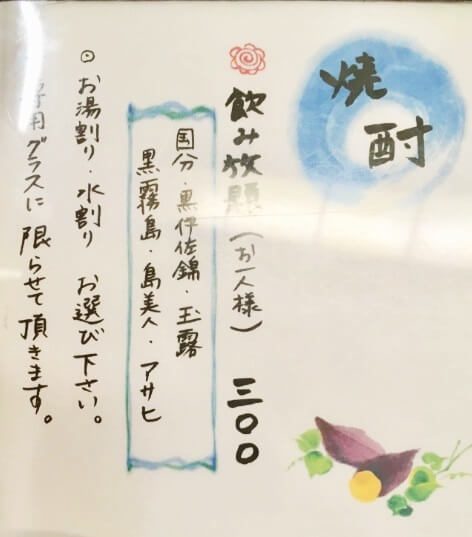 焼酎
飲み放題（お一人様）三〇〇
国分・黒伊佐錦・玉露
黒霧島・島美人・アサヒ
◎お湯割り・水割り お選び下さい。
専用グラスに限らせて頂きます。